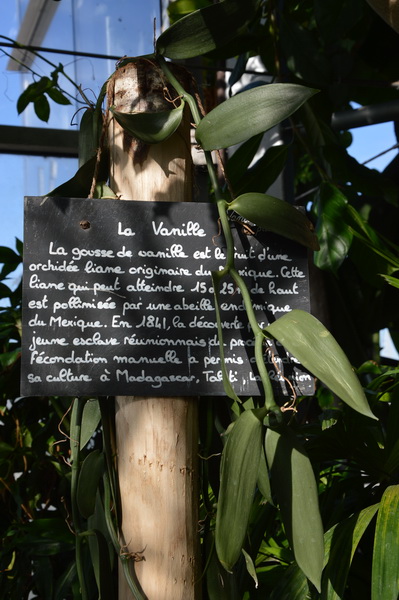 La Vanille
La gousse de vanille est le fruit d'une
orchidée liane originaire du Mexique. Cette
liane qui peut atteindre 15 à 25 m de haut
est pollinisée par une abeille endémique
du Mexique. En 1841, la découverte par
jeune esclave réunionnais du
fécondation manuelle a permis
sa culture à Madagascar, Tahiti, la Réunion